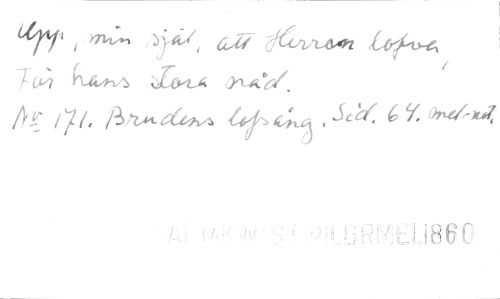 Upp, min själ, att Herran lofva,
För hans stora nåd.
No 171. Brudens lofsång. Sid. 64. mel-not.
PILGRMEL1860